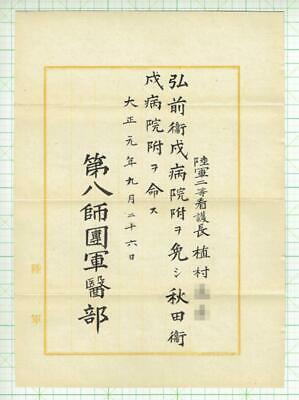 陸軍二等看護長 植村
弘前衞戍病院附ヲ免シ秋田衞
戍病院附ヲ命ス
大正元年九月二十六日
第八師團軍醫部
陸軍